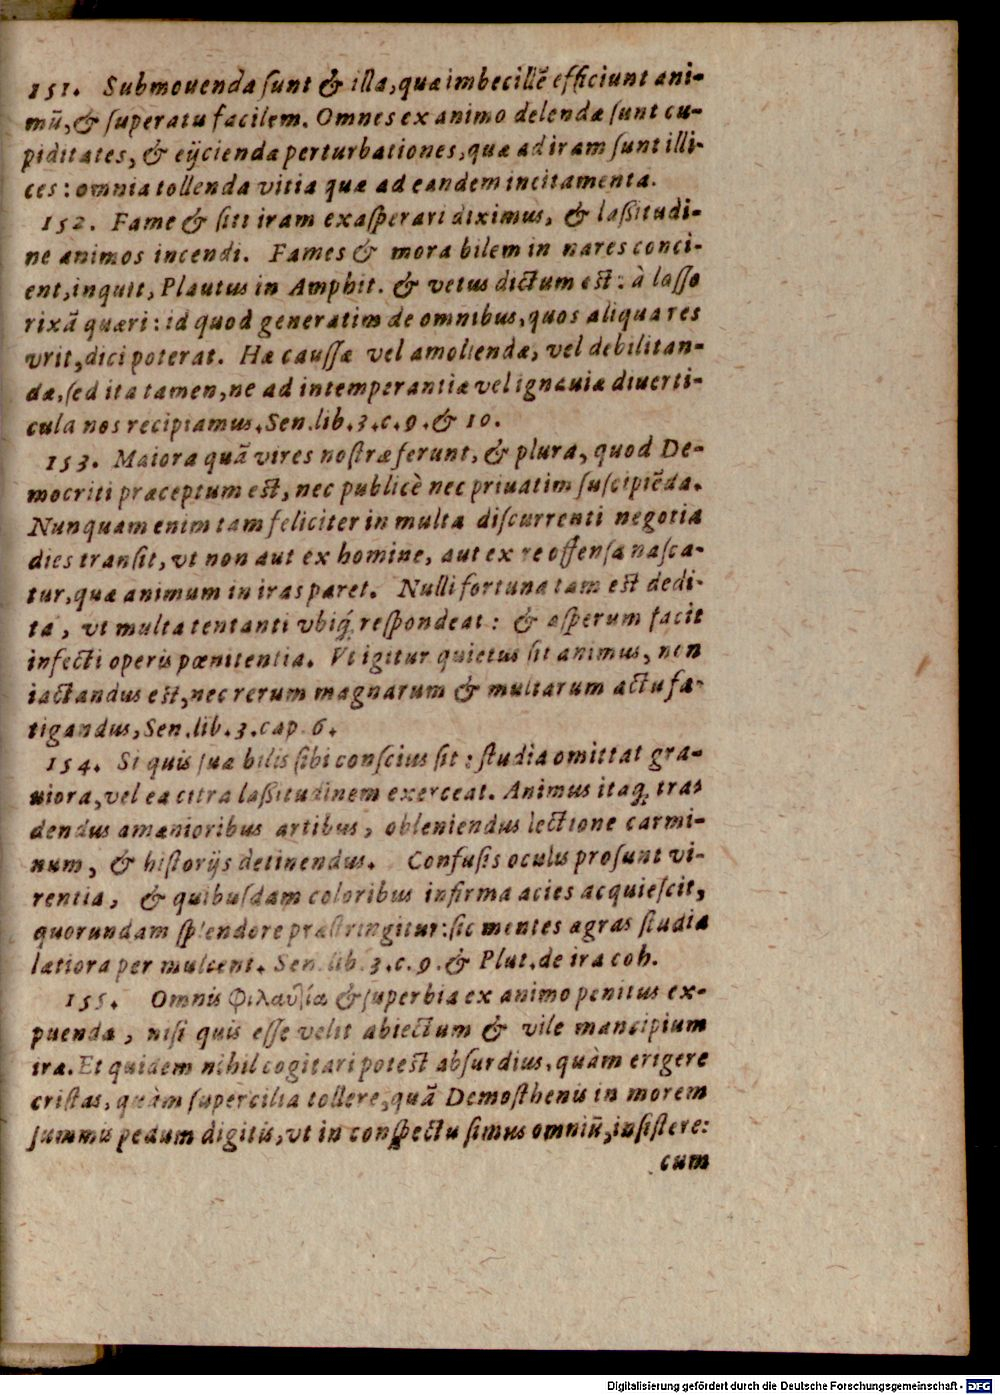 151. Submouenda ſunt & illa, quæ imbecillẽ efficiunt ani-
mũ, & ſuperatu facilem. Omnes ex animo delendæ ſunt cu-
piditates, & eijciendæ perturbationes, quæ ad iram ſunt illi-
ces: omnia tollenda vitia quæ ad eandem incitamenta.
152. Fame & ſiti iram exaſperari diximus, & laßitudi-
ne animos incendi. Fames & mora bilem in nares conci-
ent, inquit, Plautus in Amphit. & vetus dictum eſt: à laſſo
rixã quæri: id quod generatim de omnibus, quos aliqua res
vrit, dici poterat. Hæ cauſſæ vel amoliendæ, vel debilitan-
dæ, ſed ita tamen, ne ad intemperantiæ vel ignauiæ diuerti-
cula nos recipiamus. Sen. lib. 3. c. 9. & 10.
153. Maiora quã vires noſtræ ferunt, & plura, quod De-
mocriti præceptum eſt, nec publicè nec priuatim ſuſcipiẽda.
Nunquam enim tam feliciter in multa diſcurrenti negotia
dies tranſit, vt non aut ex homine, aut ex re offenſa naſca-
tur, quæ animum in iras paret. Nulli fortuna tam eſt dedi-
ta, vt multa tentanti vbiq́; reſpondeat: & aſperum facit
infecti operis pœnitentia. Vt igitur quietus ſit animus, non
iactandus eſt, nec rerum magnarum & multarum actu fa-
tigandus, Sen. lib. 3. cap. 6.
154. Si quis ſuæ bilis ſibi conſcius ſit: ſtudia omittat gra-
uiora, vel ea citra laßitudinem exerceat. Animus itaq; tra-
dendus amœnioribus artibus, obleniendus lectione carmi-
num, & hiſtorijs detinendus. Confuſis oculis proſunt vi-
rentia, & quibuſdam coloribus infirma acies acquieſcit,
quorundam ſplendore præſtringitur: ſic mentes ægras ſtudia
lætiora per mulcent. Sen. lib. 3. c. 9. & Plut. de ira coh.
155. Omnis Φιλαυτία & ſuperbia ex animo penitus ex-
puenda, niſi quis eſſe velit abiectum & vile mancipium
iræ. Et quidem nihil cogitari poteſt abſurdius, quàm erigere
criſtas, quàm ſupercilia tollere, quã Demoſthenis in morem
ſummis pedum digitis, vt in conſpectu ſimus omniũ, inſiſtere:
cum
Digitalisierung gefördert durch die Deutsche Forschungsgemeinschaft - DFG